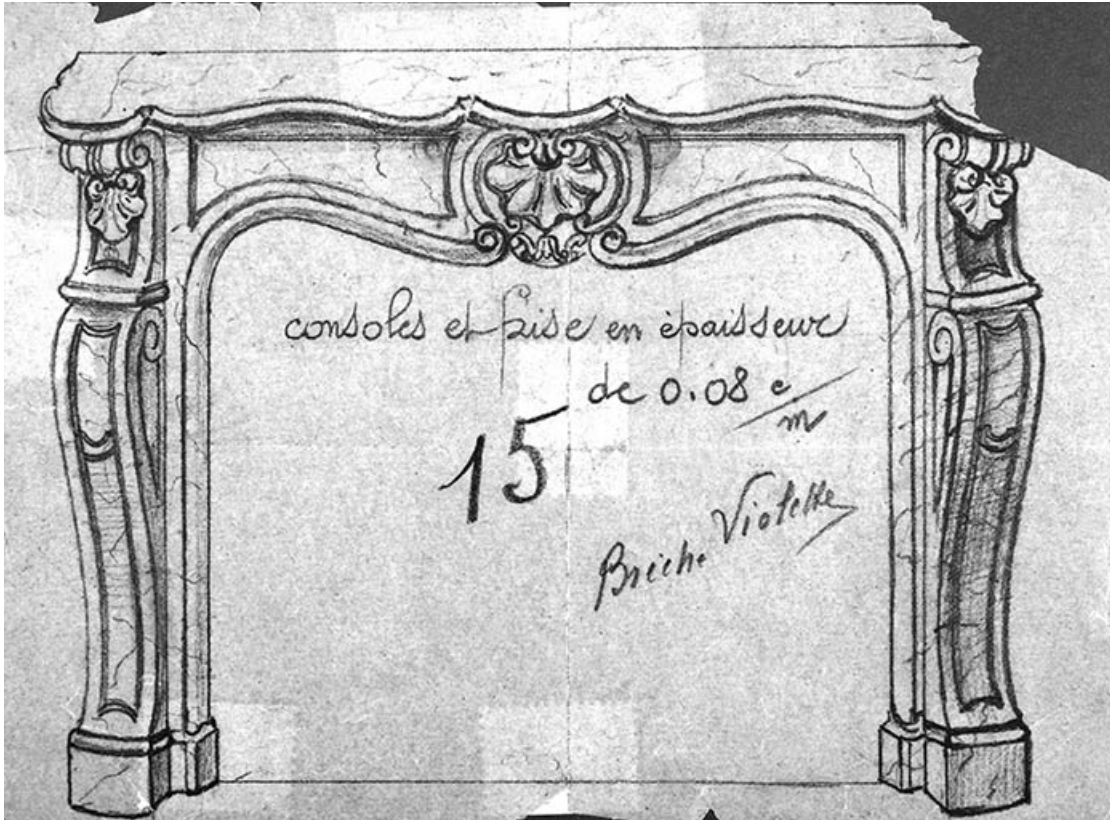 consoles et frise en épaisseur
de 0.08 c/m
15
Brèche Violette